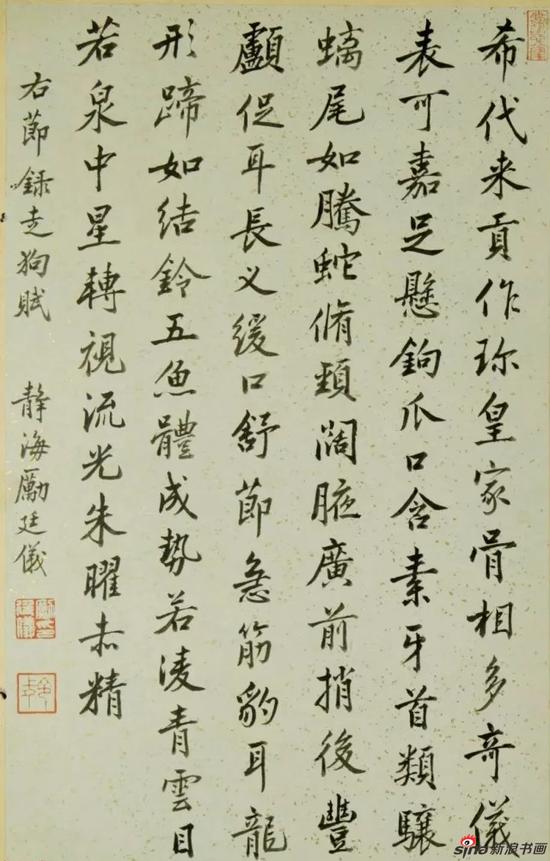 希代来貢作珎皇家骨相多奇儀
表可嘉足懸鉤爪口含素牙首類驤
螭尾如騰蛇脩頸闊腋廣前捎後豐
顱促耳長义緩口舒節急筋豹耳龍
形蹄如結鈴五魚體成勢若凌青雲目
若泉中星轉視流光朱曜赤精
右節録走狗賦 静海勵廷儀
sina新浪书画